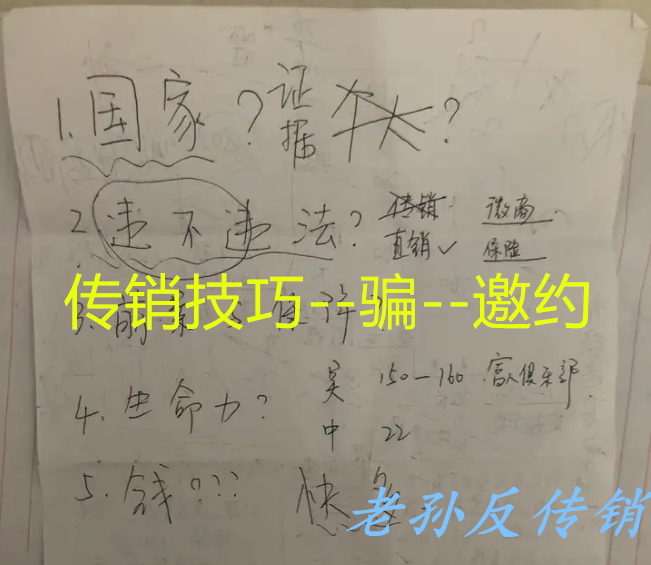 1.国家？证据 个人？
2.违不违法？传销 微商
直销✓ 保险
传销技巧--骗--邀约
3.前景
4.生命力？美 150—160 富人俱乐部
中 22
5.钱？？？快 多
老孙反传销